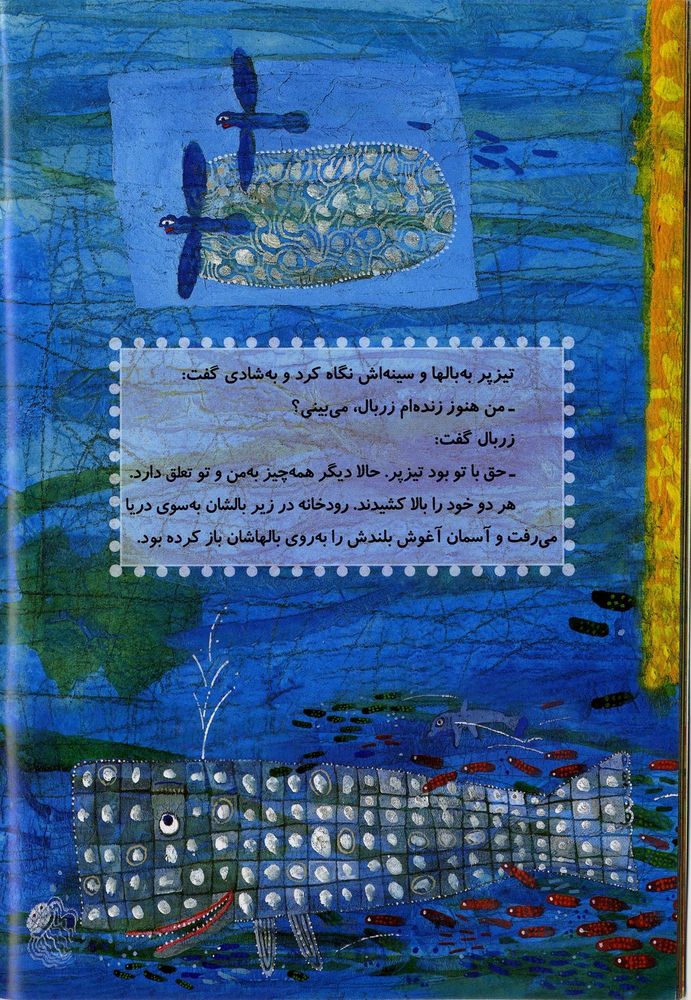 تیزپر به‌بالها و سینه‌اش نگاه کرد و به‌شادی گفت:
ـ من هنوز زنده‌ام زربال، می‌بینی؟
زربال گفت:
ـ حق با تو بود تیزپر. حالا دیگر همه‌چیز به‌من و تو تعلق دارد.
هر دو خود را بالا کشیدند. رودخانه در زیر بالشان به‌سوی دریا
می‌رفت و آسمان آغوش بلندش را به‌روی بالهاشان باز کرده بود.